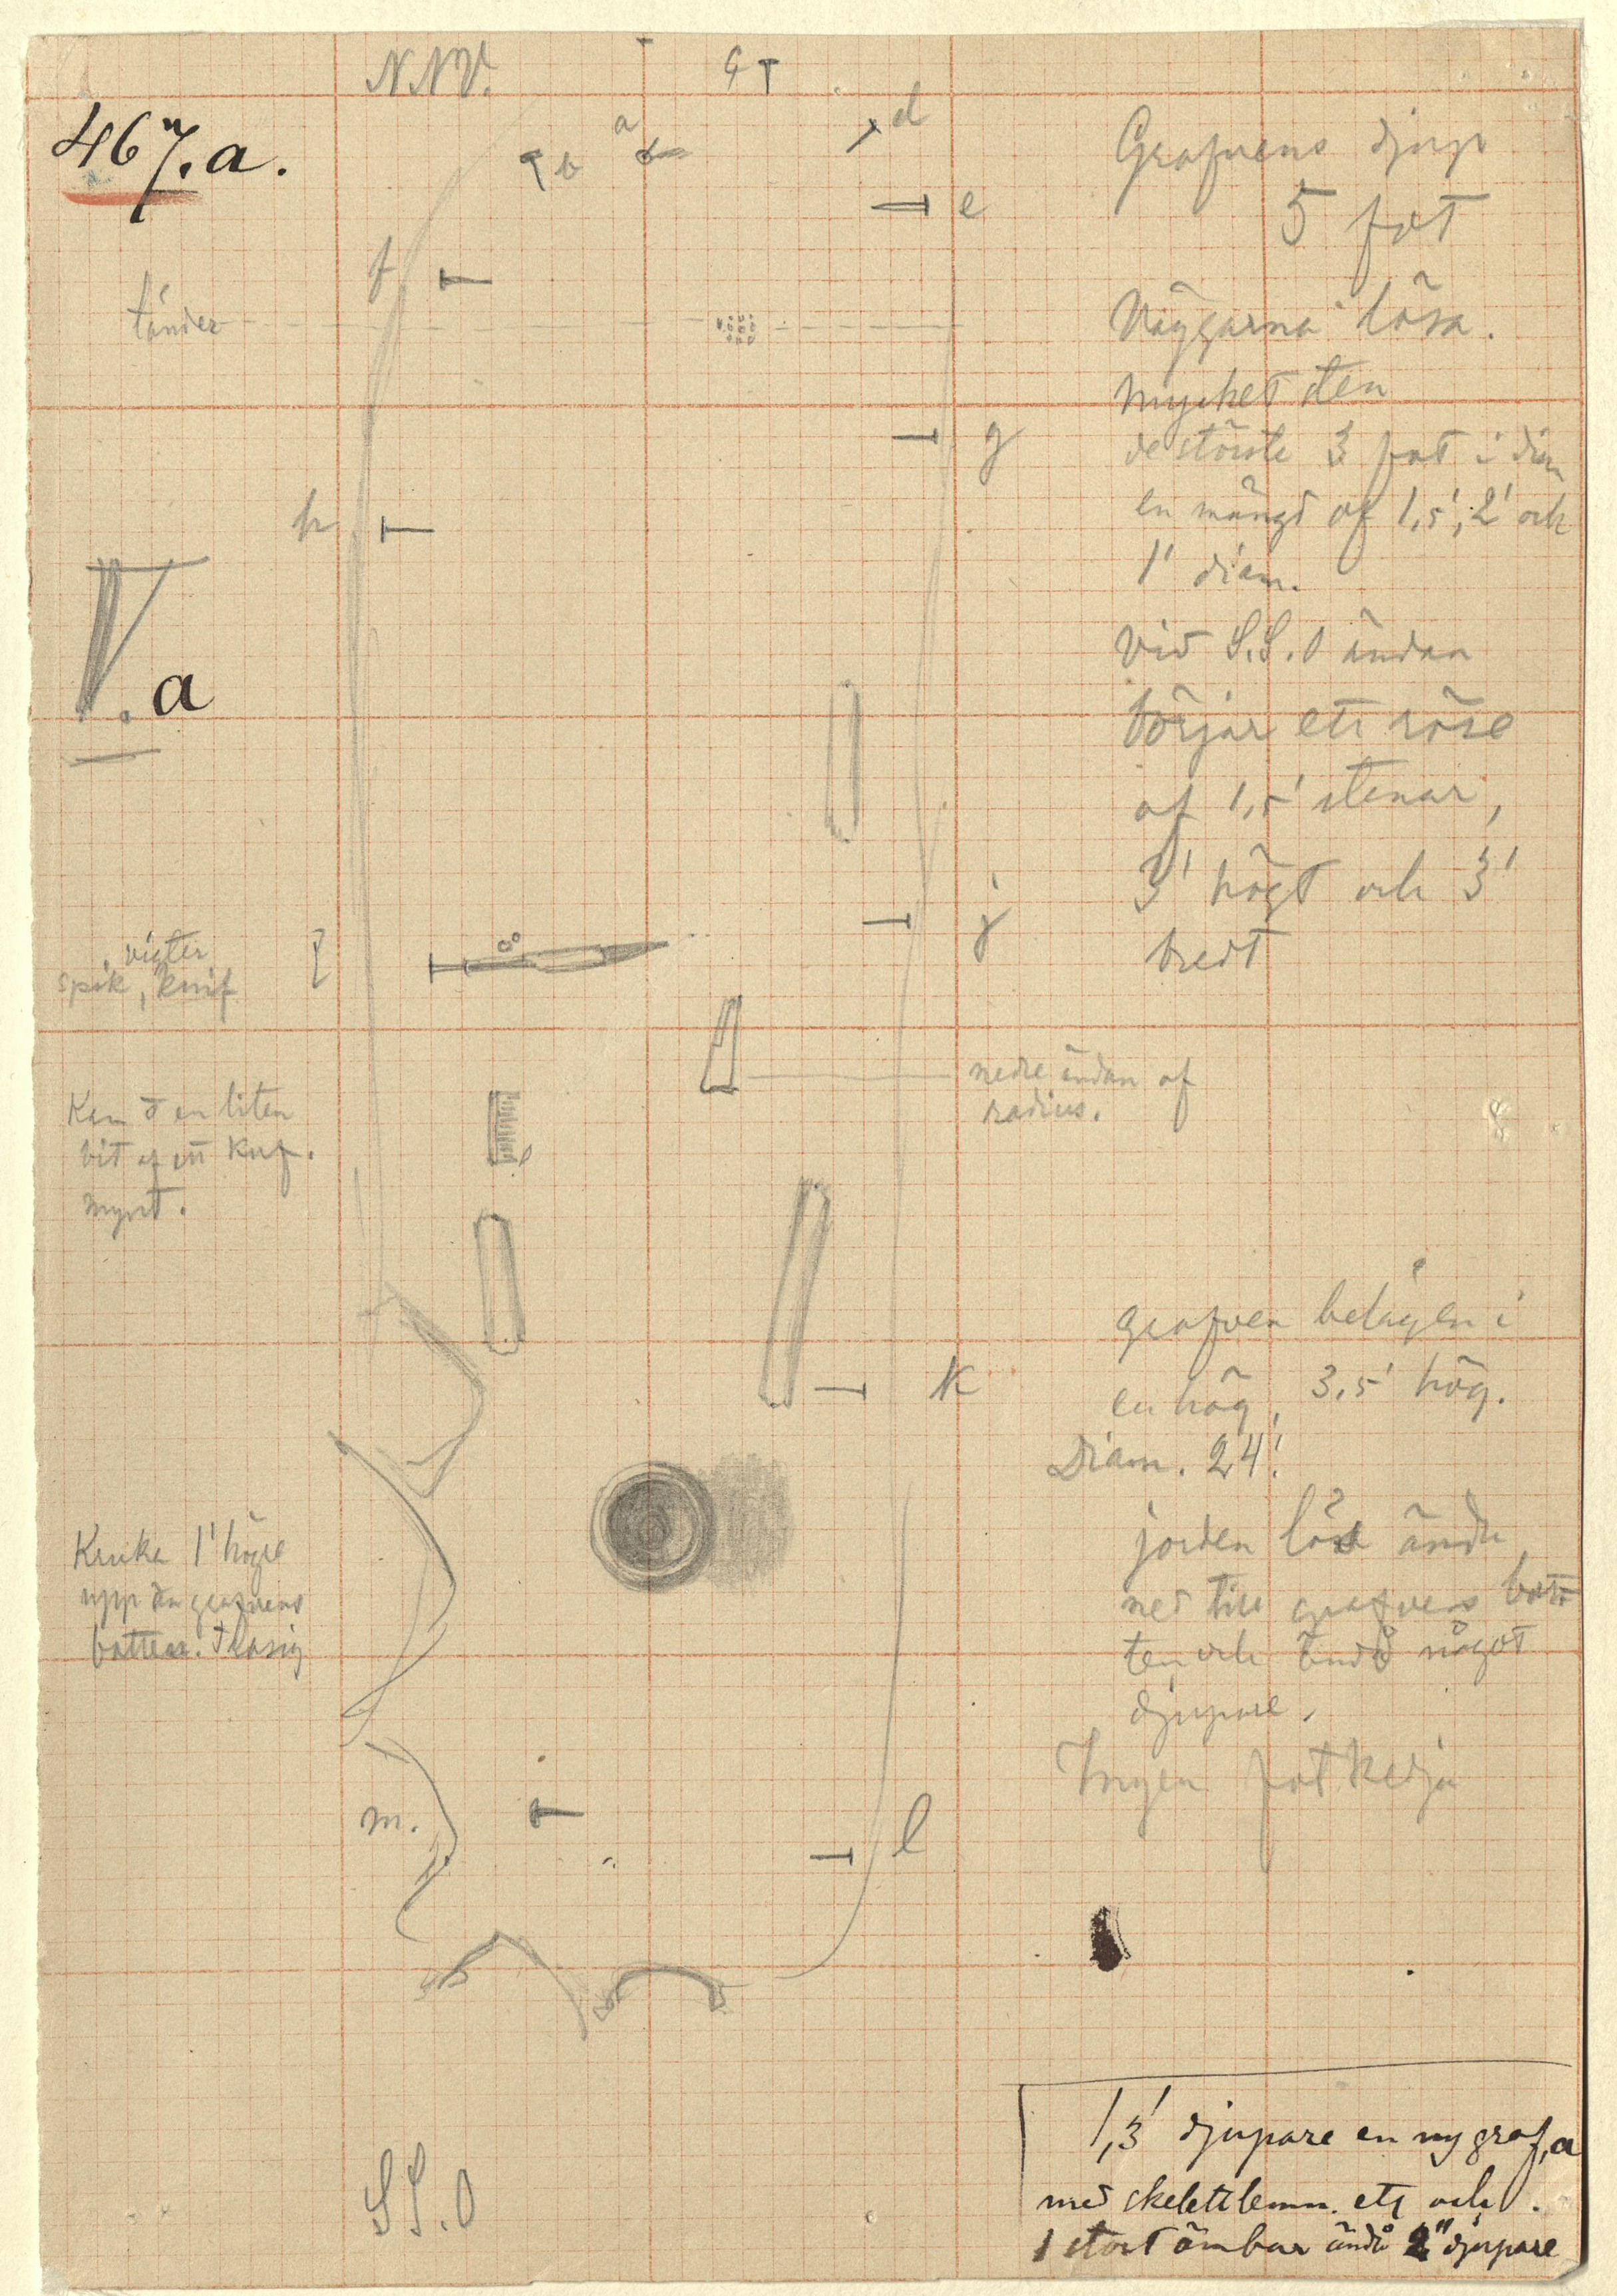 N.N.V.
467.a.
c
a
b
d
e
f
tänder
g
h
V.a
j
vigter
spik, knif
Kam & en liten
bit af ett Kuf.
mynt.
k
Kruka 1' högre
upp än grafvens
botten. Trasig
m.
l
SS.O
Grafvens djup
5 fot
Väggarna lösa.
mycket sten
de störste 3 fot i diam
en mängd af 1,5', 2' och
1' diam.
vid S.S.O ändan
börjar ett röse
af 1,5' stenar,
3' högt och 3'
bredt
nedre ändan af
radius.
grafven belägen i
en hög, 3,5' hög.
Diam. 24'.
jorden lös ända
ned till grafvens bott
ten och ändå något
djupare.
Ingen fotkedja
1,3' djupare en ny graf, a
med skelettlemn. ett och
1 stort ämbar ändå 2" djupare